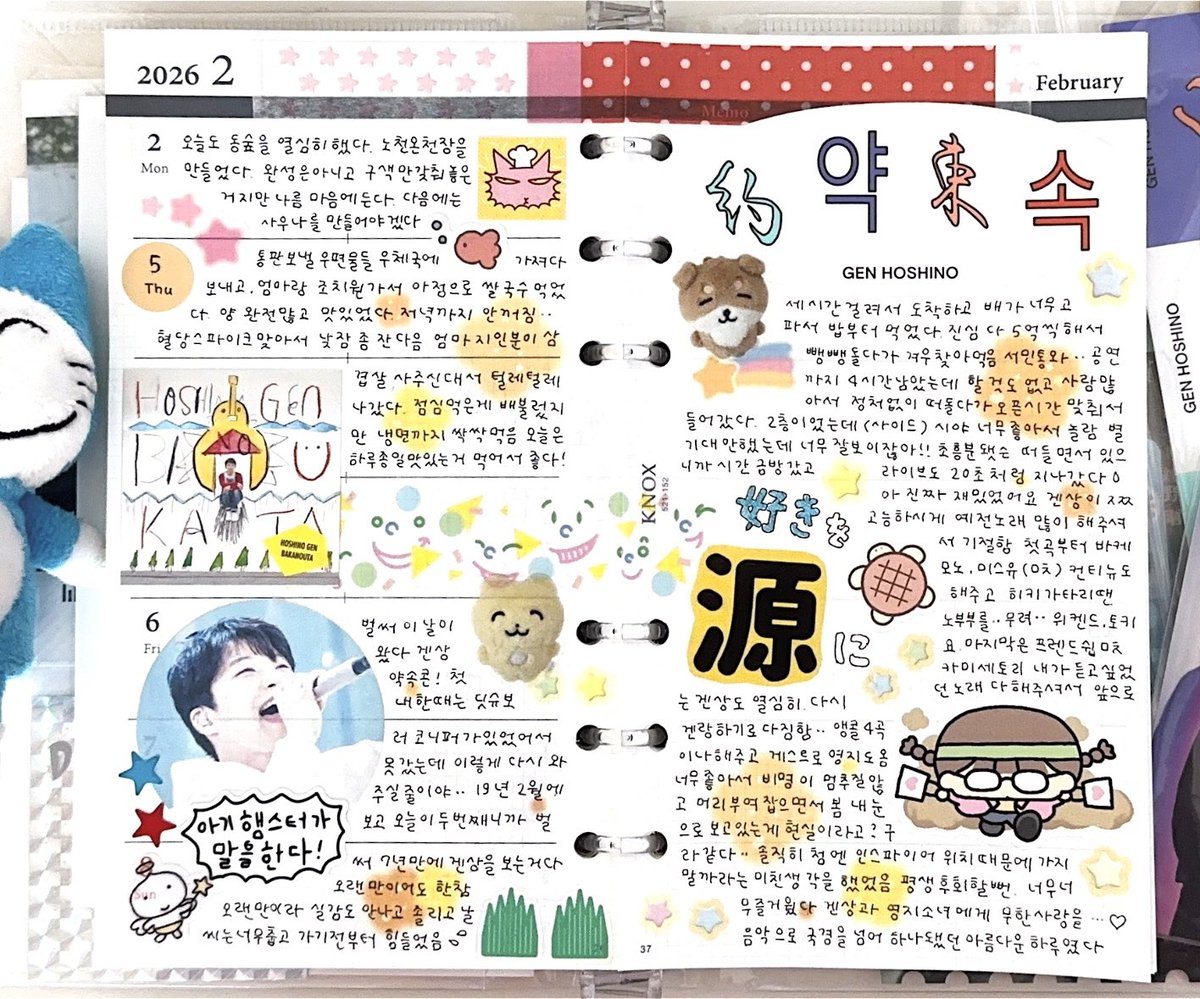 2026 2
2
Mon
오늘도 동숲을 열심히했다. 노천온천장을
만들었다. 완성은아니고 구색만갖춰놓은
거지만 나름 마음에든다. 다음에는
사우나를 만들어야겠다
5
Thu
통판보낼 우편물들 우체국에 가져다
보내고, 엄마랑 조치원가서 아점으로 쌀국수먹었
다. 양 완전많고 맛있었다. 저녁까지 안꺼짐··
혈당스파이크맞아서 낮잠 좀 잔다음 엄마지인분이 삼
겹살 사주신대서 털레털레
나갔다. 점심먹은게 배불렀지
만 냉면까지 싹싹먹음 오늘은
하루종일맛있는거 먹어서 좋다!
HOSHINO GEN
BAKANOUTA
6
Fri
벌써 이날이
왔다 겐상
약속콘! 첫
내한때는 딧슈보
러 코니퍼가있었어서
못갔는데 이렇게 다시 와
주실줄이야·· 19년 2월에
보고 오늘이두번째니까 벌
써 7년만에 겐상을 보는거다
오랜만이어도 한참
오랜만이라 실감도 안나고 졸리고 날
씨는너무춥고 가기전부터 힘들었음
7
아기햄스터가
말틀한다!
sun
February
Memo
約 약 束 속
GEN HOSHINO
세시간걸려서 도착하고 배가너무고
파서 밥부터 먹었다. 진심 다 5억씩해서
뺑뺑돌다가 겨우찾아먹음 서민통와·· 공연
까지 4시간남았는데 할것도없고 사람많
아서 정처없이 떠돌다가오픈시간 맞춰서
들어갔다. 2층이었는데 (사이드) 시야 너무좋아서 놀람 별
기대안했는데 너무잘보이잖아!! 초흥분돼슨 떠들면서있으
니까 시간 금방갔고
라이브도 20초처럼 지나갔다 아
아 진짜 재밌었어요 겐상이 ㅈㅉ
고능하시게 예전노래 많이 해주셔
서 기절함 첫곡부터 바케
모노, 미스유(미ㅊ) 컨티뉴도
해주고 히키가타리땐
노부부를·· 무려·· 위켄드, 토키
요. 마지막은프렌드쉽 미ㅊ
카미세토리 내가듣고싶었
던노래 다해주셔서 앞으로
는겐상도 열심히. 다시
겐랑하기로다짐함·· 앵콜4곡
이나해주고 게스트로 영지도옴
너무좋아서 비명이 멈추질않
고 머리부여잡으면서 봄 내눈
으로보고있는게 현실이라고? 구
라같다·· 솔직히 첨엔 인스파이어 위치때문에가지
말까라는미친생각을했었음 평생후회할뻔. 너무너
무즐거웠다 겐상과 영지소녀에게 무한사랑을 … ♡
음악으로 국경을넘어 하나됐던 아름다운 하루였다
好きを
源
に
KNOX
521-152
37
GEN HOSHINO